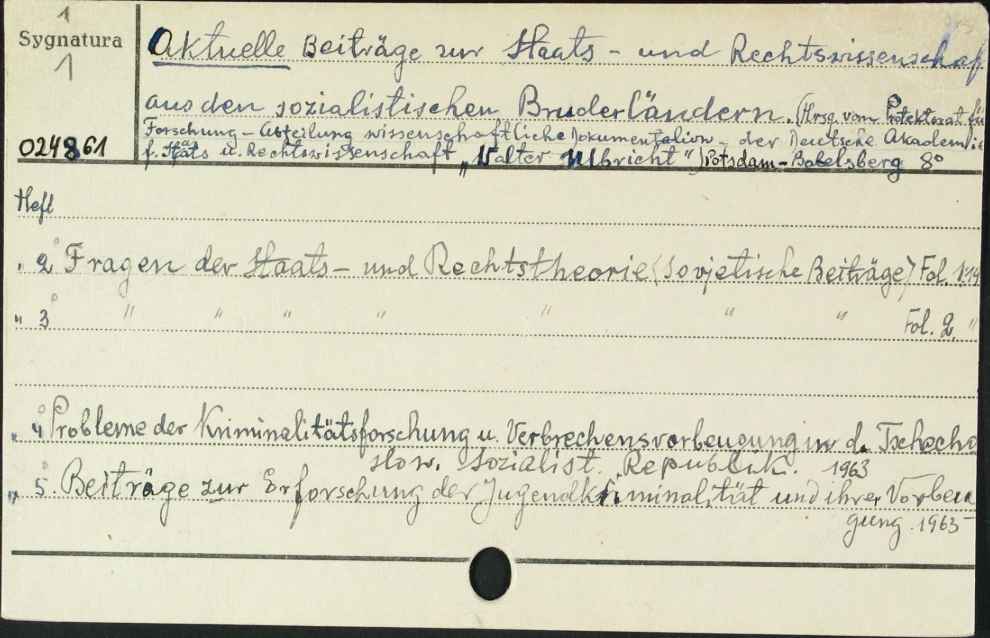 1
Sygnatura
1
024861
Aktuelle Beiträge zur Staats - und Rechtswissenschaf.
aus den sozialistischen Bruderländern. (Hrsg. vom Protektorat für
Forschung - Abteilung wissenschaftliche Dokumentation - der Deutsche Akademie
f. Staats u. Rechtswissenschaft "Walter Ulbricht") Potsdam - Babelsberg 8°
Heft
" 2 Fragen der Staats - und Rechtstheorie (Sovjetische Beiträge) Fol. 1.
" 3 " " " " " " " Fol. 2. "
" 4 Probleme der Kriminalitätsforschung u. Verbrechensvorbeugung in d. Tschecho
slow. Sozialist. Republik. 1963
" 5. Beiträge zur Erforschung der Jugendkriminalität und ihrer Vorbeu
gung. 1965